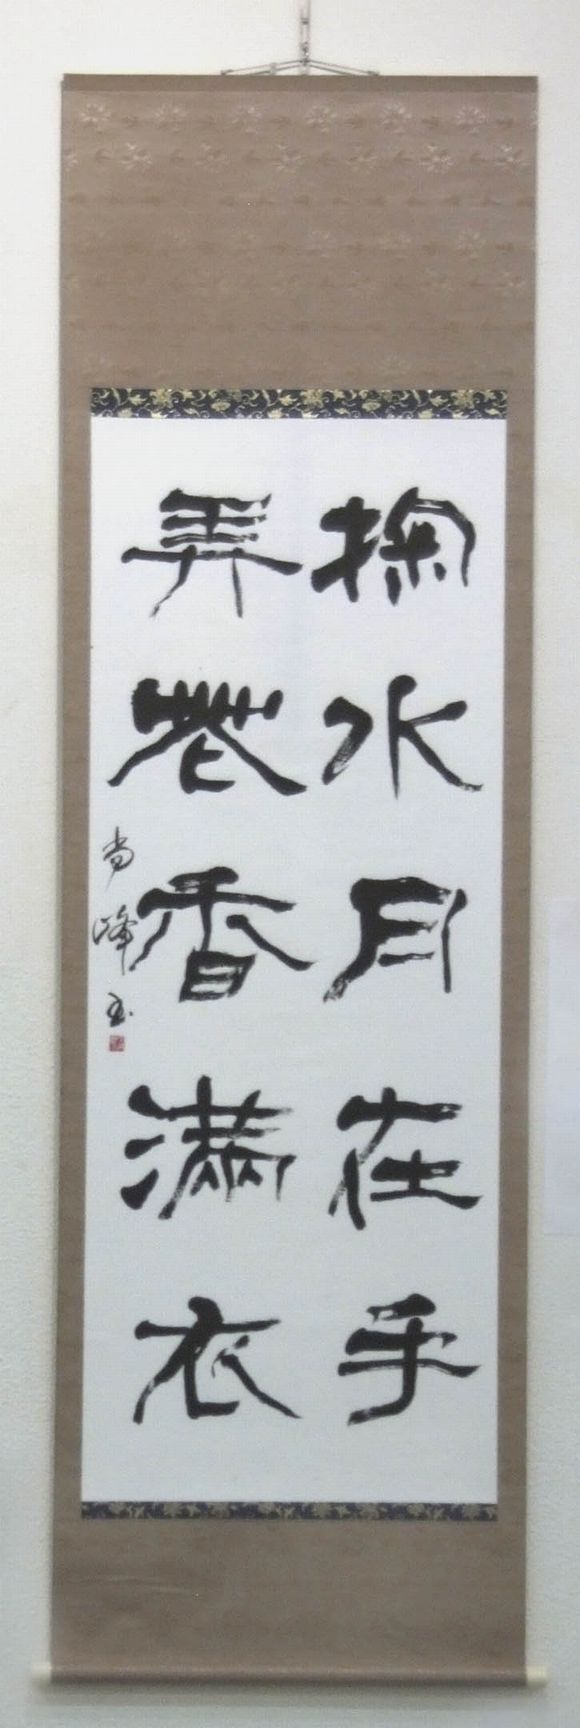 掬水月在手
弄花香満衣
尚峰书